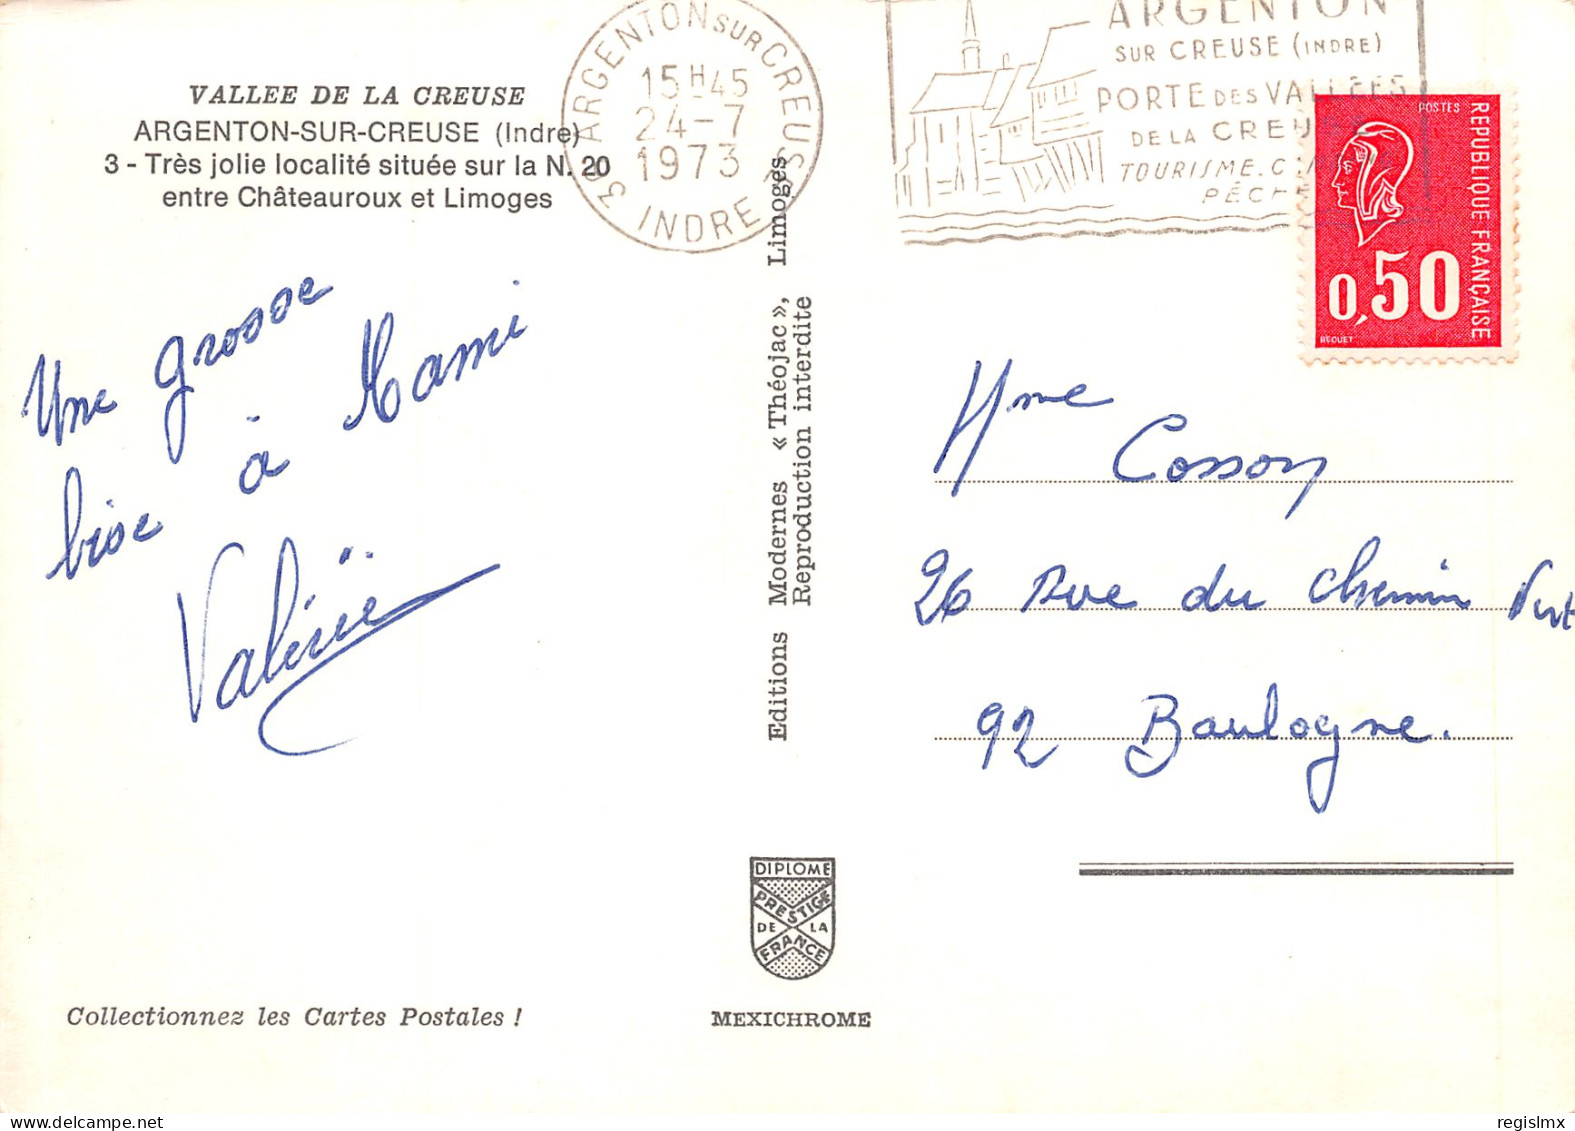 VALLEE DE LA CREUSE
ARGENTON-SUR-CREUSE (Indre)
3 - Très jolie localité située sur la N. 20
entre Châteauroux et Limoges
ARGENTON SUR CREUSE
15H45
24-7
1973
36 INDRE
ARGENTON
SUR CREUSE (INDRE)
PORTE DES VALLEES
DE LA CREUSE
TOURISME.
PÊCHE
POSTES
REPUBLIQUE FRANÇAISE
0,50
BEQUET
Une grosse
bise à Mami
Valérie
Editions Modernes « Théojac », Limoges
Reproduction interdite
Mme
Cosson
26 Rue du Chemin Vert
92 Boulogne.
DIPLOME
PRESTIGE
DE LA
FRANCE
Collectionnez les Cartes Postales !
MEXICHROME
regislmx